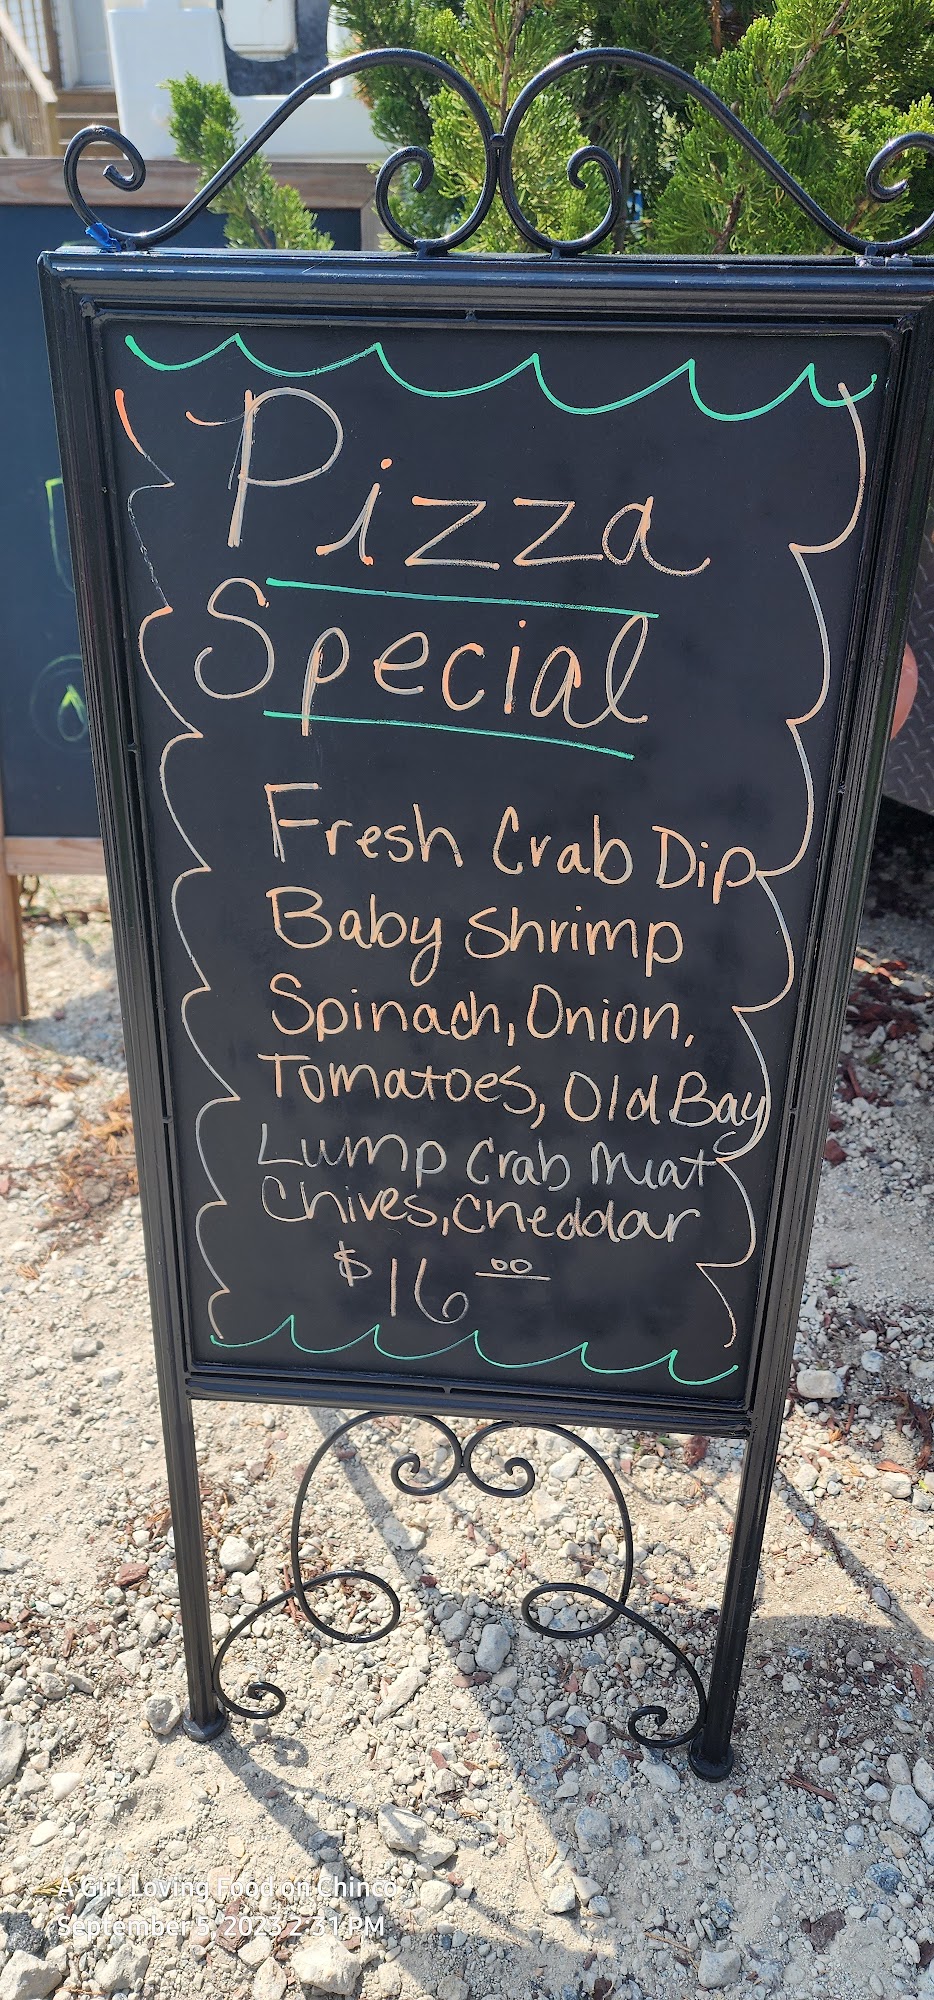 Pizza
Special
Fresh Crab Dip
Baby Shrimp
Spinach, Onion,
Tomatoes, Old Bay
Lump Crab Meat
Chives, Cheddar
$16.00
A Girl Loving Food on Chinco
September 5, 2023 2:31 PM